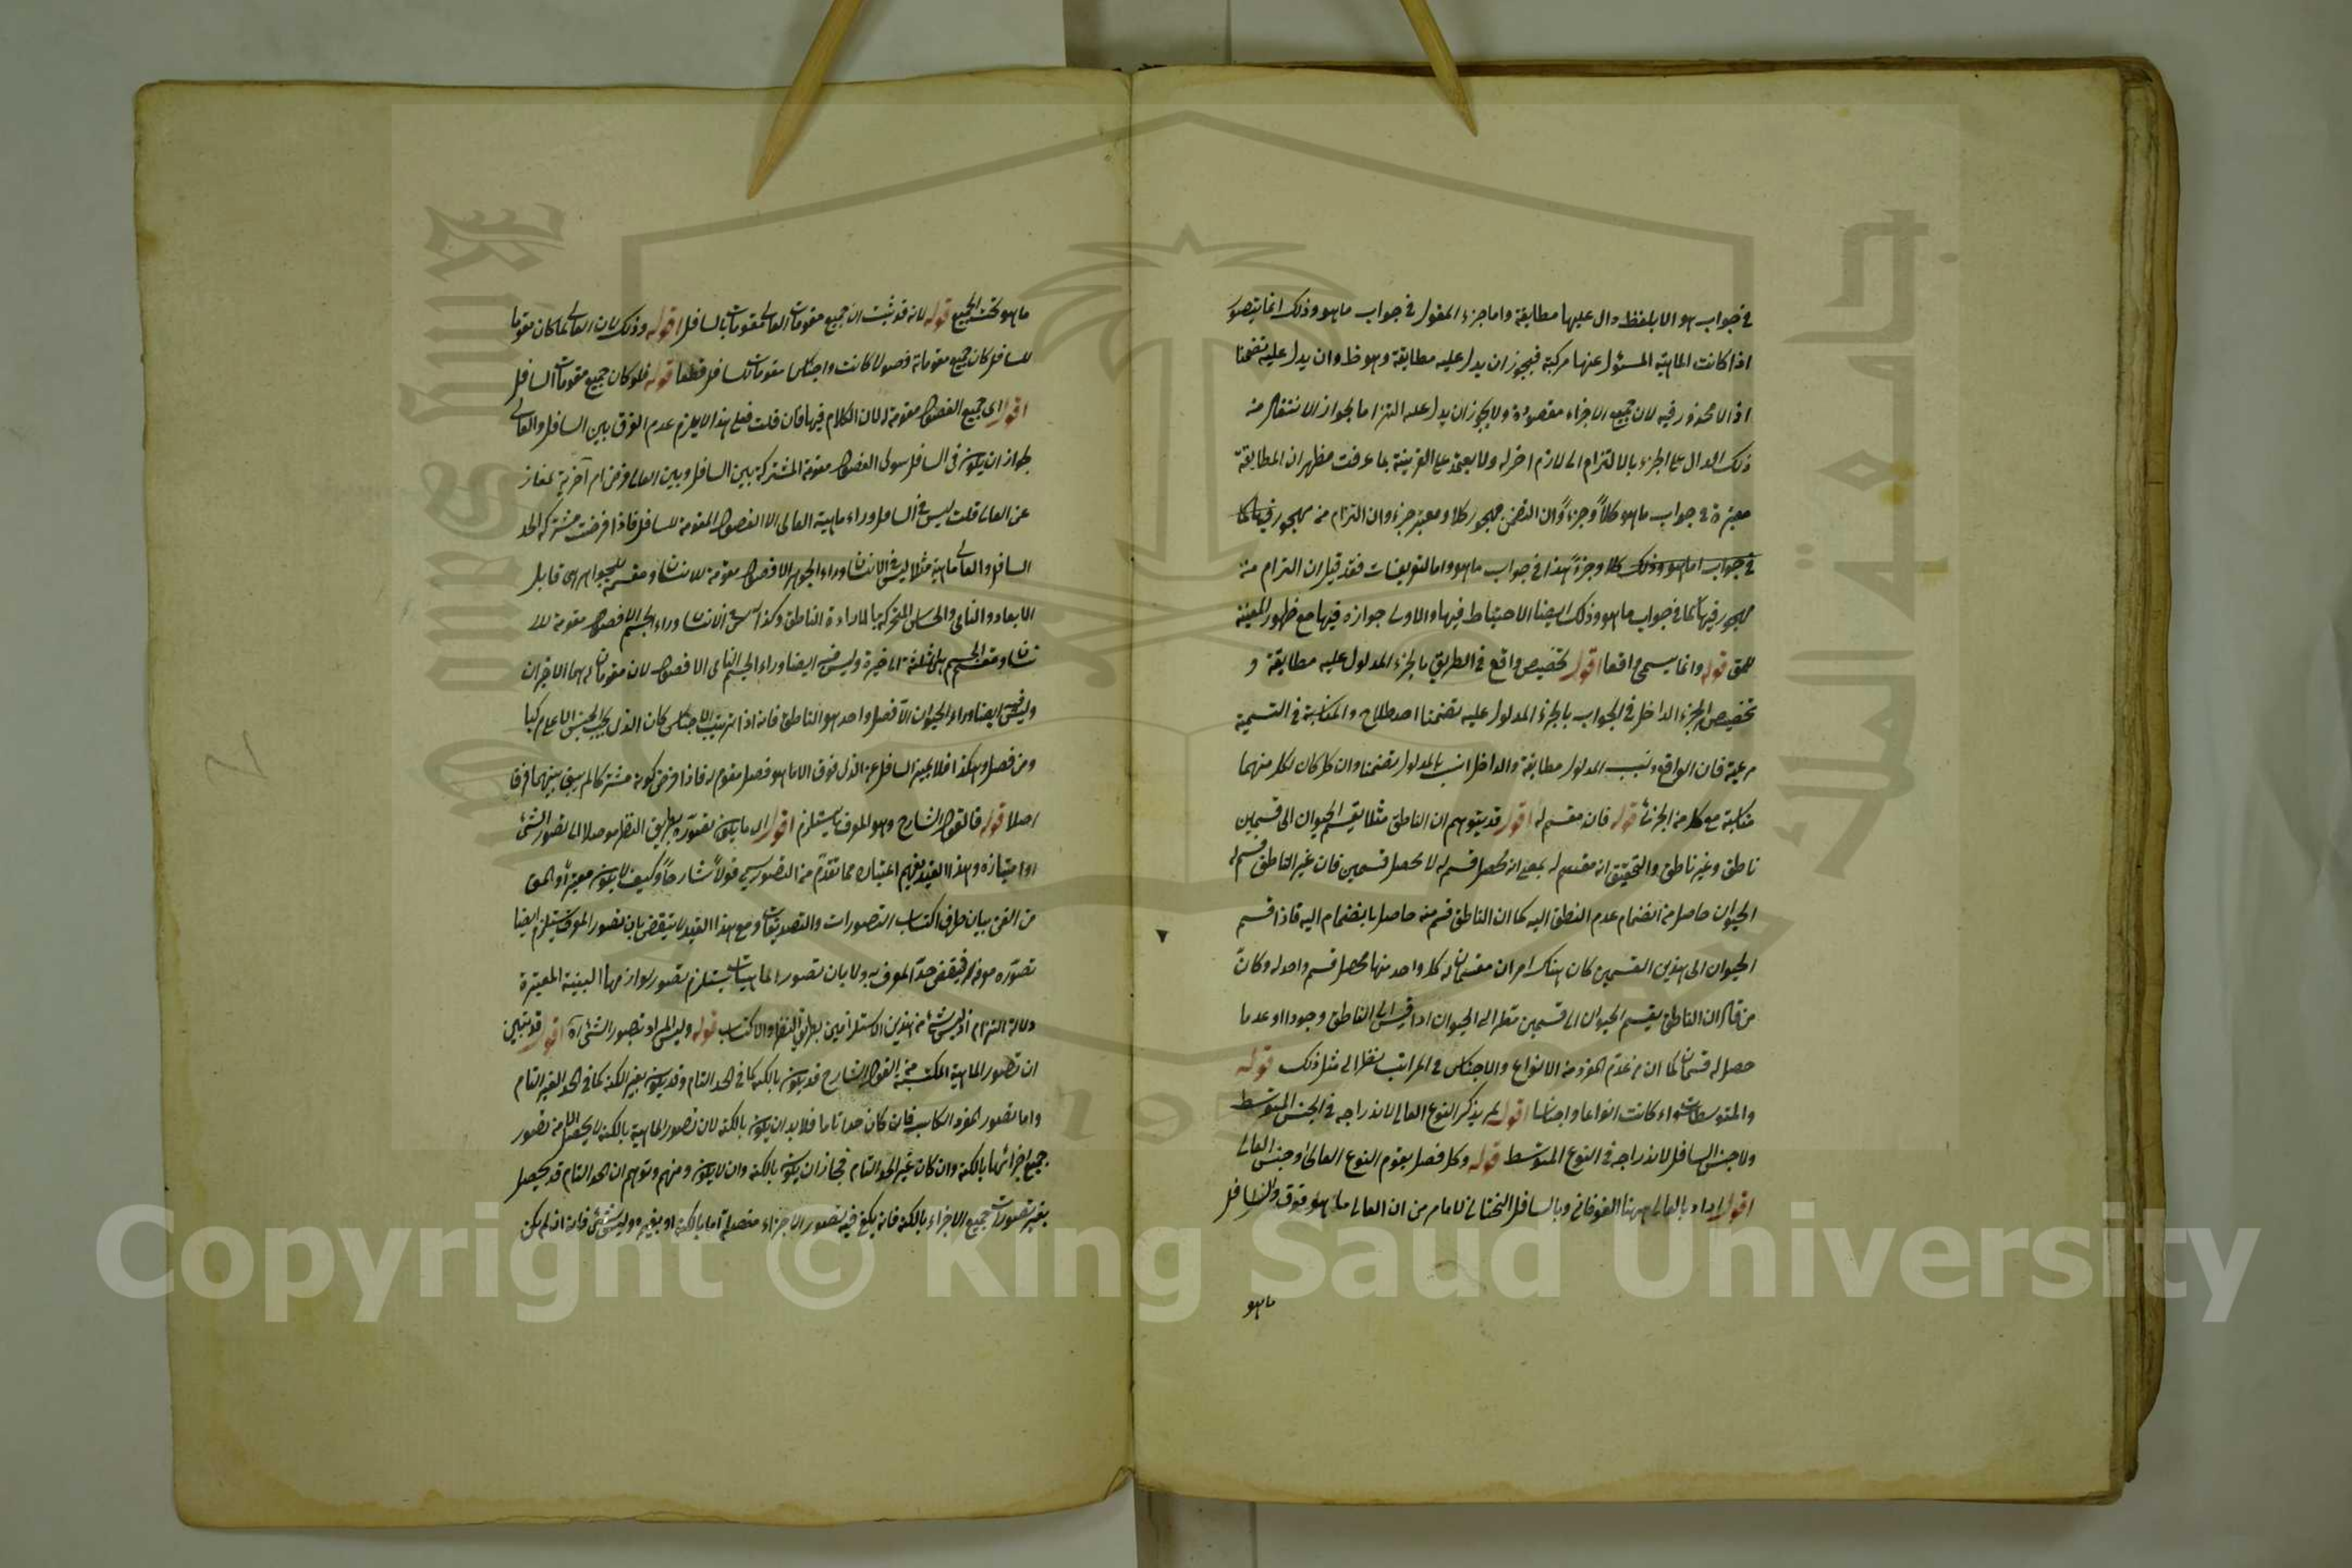 في جواب هو الا بلفظ دال عليها مطابقة واما جزء المقول في جواب ما هو وذلك انما يتصور
اذا كانت الماهية المسئول عنها مركبة فيجوز ان يدل عليه مطابقة وهو ظ وان يدل عليه تضمنا
اذ لا محذور فيه لان جميع الاجزاء مقصودة ولا يجوز ان يدل عليه التزاما لجواز الانتقال من
ذلك الدال على الجزء بالالتزام الى لازم اخر له ولا يعتمد على القرينة بما عرفت فظهر ان المطابقة
معتبرة في جواب ما هو كلاً وجزءاً وان التضمن مهجور كلا ومعتبر جزء وان التزام منه مهجور فيها كما
في جواب ما هو وذلك كلا وجزءً هذا في جواب ما هو واما التعريفات فقد قيل ان التزام منه
مهجور فيها كما في جواب ما هو وذلك ايضا الاحتياط فيها والاولى جوازه فيها مع ظهور المعينة
للمق قوله وانما يسمى واقعا اقول تخصيص واقع في الطريق بالجزء المدلول عليه مطابقة و
تخصيص الجزء الداخل في الجواب بالجزء المدلول عليه تضمنا اصطلاح والمناسبة في التسمية
مرعية فان الواقع انسب المدلول مطابقة والداخل انسب بالمدلول تضمنا وان كان لكل منهما
مناسبة مع كل من الجزئ قوله فان مقسم له اقول قد يتوهم ان الناطق مثلا يقسم الحيوان الى قسمين
ناطق وغير ناطق والتحقيق انه مقسم له بمعنى انه محصل قسم له لا محصل قسمين فان غير الناطق قسم له
الحيوان حاصل من انضمام عدم النطق اليه كما ان الناطق قسم منه حاصل بانضمام اليه فاذا قسم
الحيوان الى هذين القسمين كان هناك امران مقسمان له كل واحد منها محصل قسم واحد له وكانّ
من قال ان الناطق يقسم الحيوان الى قسمين نظر الى الحيوان اذا قيس الى الناطق وجودا او عدما
حصل له قسمان كما ان من عدّ المفرد من الانواع والاجناس في المراتب نظر الى مثل ذلك قوله
والمتوسطات سواء كانت انواعا او اجناسا اقول لم يذكر النوع العالى لاندراجه في الجنس المتوسط
ولا جنس السافل لاندراجه في النوع المتوسط قوله وكل فصل يقوم النوع العالى او جنس العالى
اقول اراد بالعالى ههنا الفوقاني وبالسافل التحتاني لا ما مر من ان العالى ما هو فوق والسافل
ما هو
ما هو تحت الجميع قوله لانه قد ثبت ان جميع مقومات العالى مقومات بالسافل اقول وذلك لان العالى لما كان مقوما
للسافل كان جميع مقوماته فصولا كانت او اجناسا مقومات للسافل قطعا قوله فلو كان جميع مقومات السافل
اقول اى جميع الفصول مقومة له لان الكلام فيها فان قلت فعلى هذا لا يلزم عدم الفرق بين السافل والعالى
لجواز ان يكون في السافل سوى الفصول مقومة المشتركة بين السافل وبين العالى فرض امر آخر به يمتاز
عن العالى قلت ليس في السافل وراء ماهية العالى الا الفصول المقومة للسافل فاذا فرضت مشتركة اتحد
السافل والعالى ماهية مثلا ليس في الانسان وراء الجوهر الا فصول مقومة للانسان ومقسمة للجواهر هي قابل
الابعاد والنامى والحساس المتحرك بالارادة الناطق وكذا ليس في الانسان وراء الجسم الا فصول مقومة للا
نسان ومقسمة للجسم هي الثلثة الاخيرة وليس فيه ايضا وراء الجسم النامى الا فصول لان مقومان له هما الاخيران
وليس فيه ايضا وراء الحيوان الا فصل واحد هو الناطق فانه اذا ترتيب الاجناس كان النازل يجب الجنس الاعلى مركبا
ومن فصل وهكذا فلا يميز السافل عن الذى فوق الا ما هو فصل مقوم له فاذا فرض كونه مشتركا لم يبق بينهما فرق
اصلا قوله فالقول الشارح وهو المعرف ما يستلزم اقول اى ما يكون تصوره بطريق النظر موصلا الى تصور الشئ
او امتيازه وهذا القيد يفهم اعتباره مما تقدم من التصور يسمى قولا شارحا وكيف لا يكون معتبرا والمق
من الفن بيان طرق اكتساب التصورات والتصديقات ومع هذا القيد لا ينتقض بان تصور المعرف يستلزم ايضا
تصوره معرفه فينتقض حد المعرف به ولا بان تصور الماهيات يستلزم تصور لوازمها البينة المعتبرة
دلالة التزام اذ ليس شئ من هذين الاستلزامين بطريق النظر والاكتساب قوله وليس المراد بتصور الشئ آه اقول قد تبين
ان تصور الماهية المكتسبة من القول الشارح قد يكون بالكنه كما في الحد التام وقد يكون بغير الكنه كما في الحد الغير التام
واما تصور المعرف الكاسب فان كان حدا تاما فلا بد ان يكون بالكنه لان تصور الماهية بالكنه لا يحصل الا من تصور
جميع اجزائها بالكنه وان كان غير الحد التام فجاز ان يكون بالكنه وان لا يكون ومنهم وتوهم ان الحد التام قد يحصل
بغير تصورات جميع الاجزاء بالكنه فانه يكفي فيه تصور الاجزاء مفصلة اما بالكنه او بغيره وليس بشئ فانه اذا لم يكن
Copyright © King Saud University